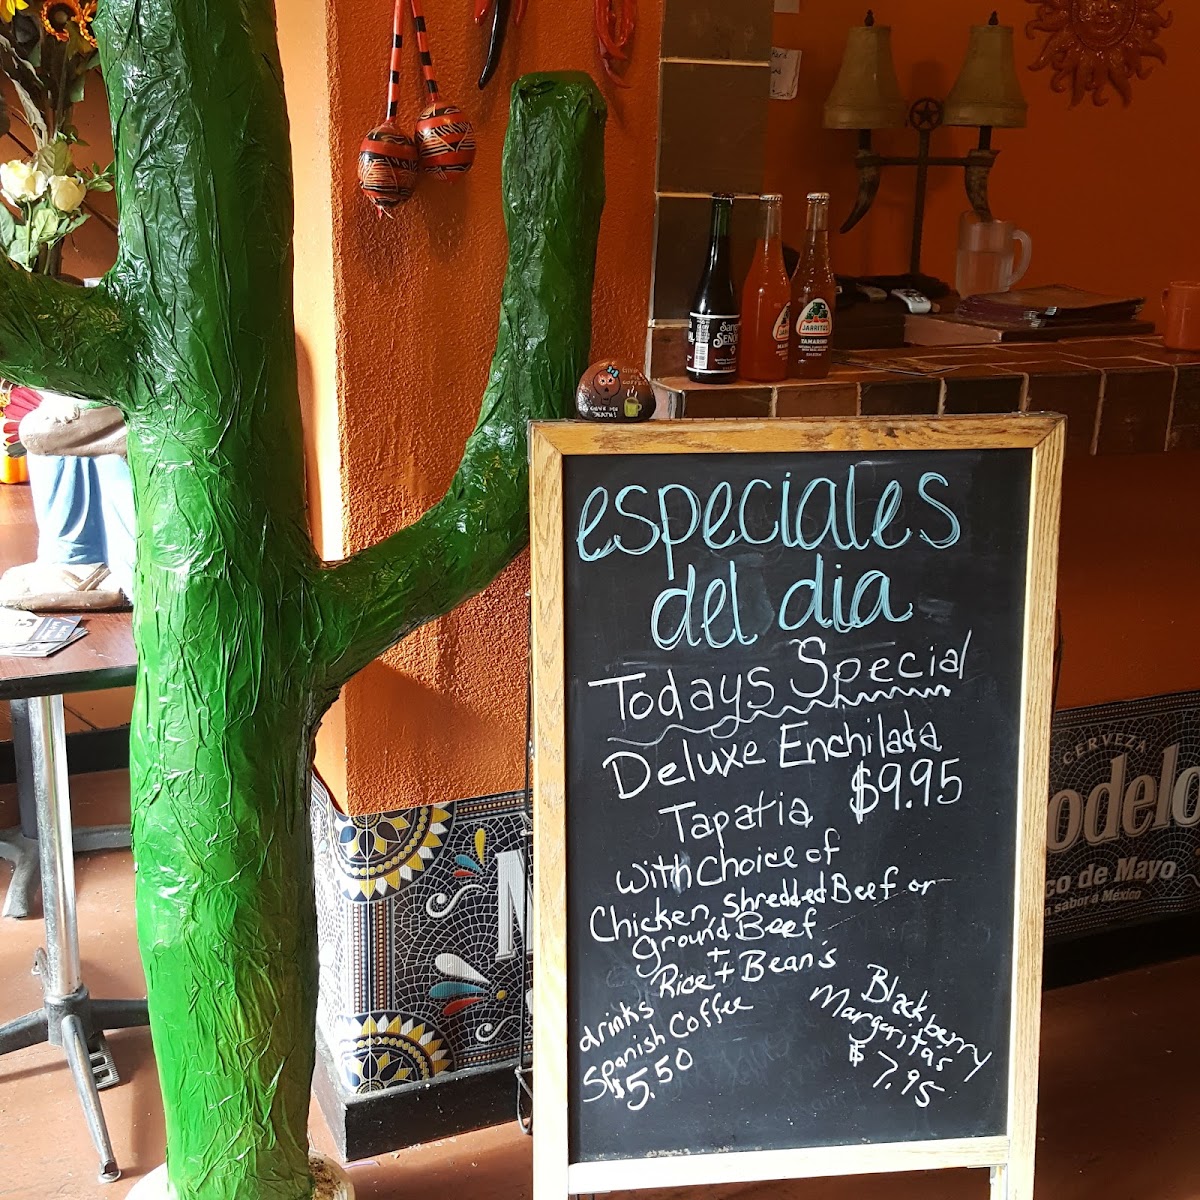 especiales
del dia
Todays Special
Deluxe Enchilada
Tapatia $9.95
with Choice of
Chicken, Shredded Beef or
ground Beef
+
Rice + Bean's
drinks
Spanish Coffee
$5.50
Blackberry
Margaritas
$7.95
SEÑOR
JARRITOS
TAMARINDO
CERVEZA
odelo
co de Mayo
n sabor a México